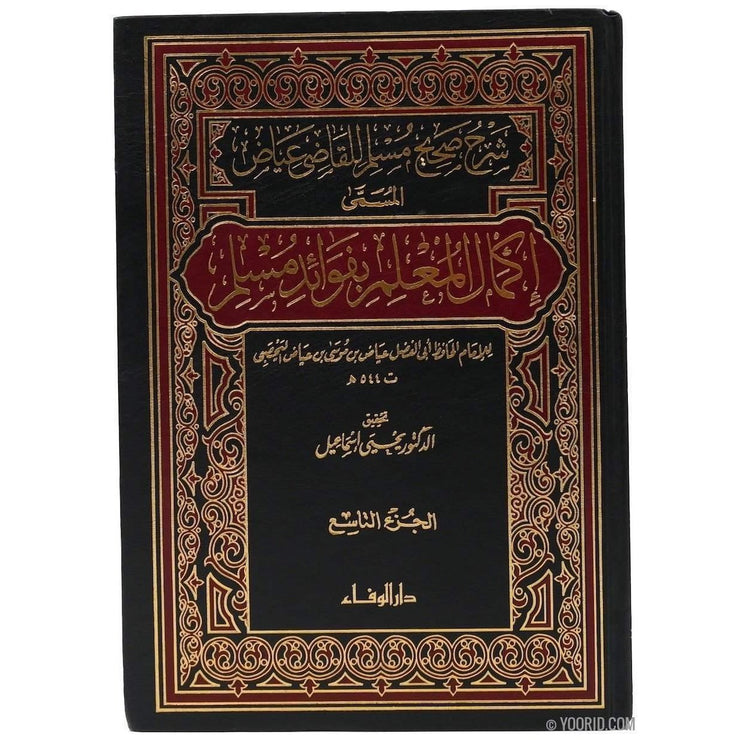 شرح صحيح مسلم للقاضي عياض
المسمى
إكمال المعلم بفوائد مسلم
للإمام الحافظ أبي الفضل عياض بن موسى بن عياض اليحصبي
ت ٥٤٤ هـ
تحقيق
الدكتور يحيى إسماعيل
الجزء التاسع
دار الوفاء
© YOORID.COM